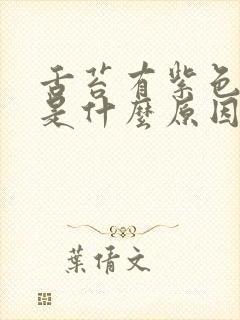 舌苔有紫色
是什麼原因
葉倩文